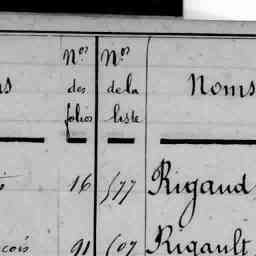 Nos des folios
Nos de la liste
Noms
16 577 Rigaud
91 607 Rigault